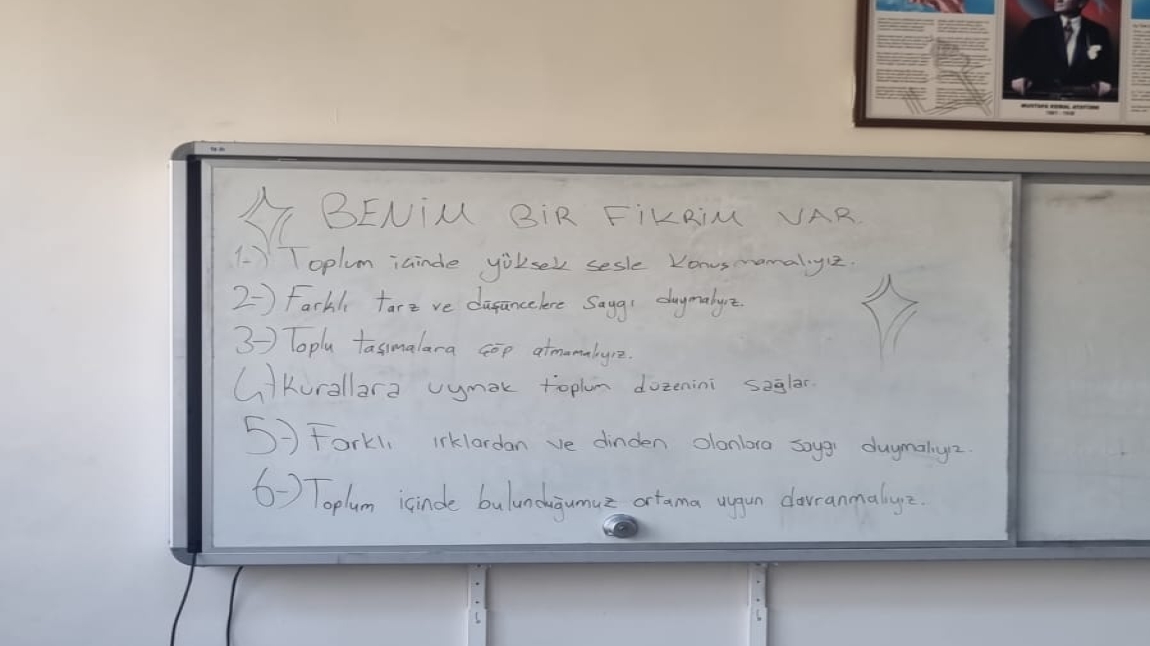 BENİM BİR FİKRİM VAR.
1-) Toplum içinde yüksek sesle konuşmamalıyız.
2-) Farklı tarz ve düşüncelere saygı duymalıyız.
3-) Toplu taşımalara çöp atmamalıyız.
4-) Kurallara uymak toplum düzenini sağlar.
5-) Farklı ırklardan ve dinden olanlara saygı duymalıyız.
6-) Toplum içinde bulunduğumuz ortama uygun davranmalıyız.
MUSTAFA KEMAL ATATÜRK
1881 - 1938